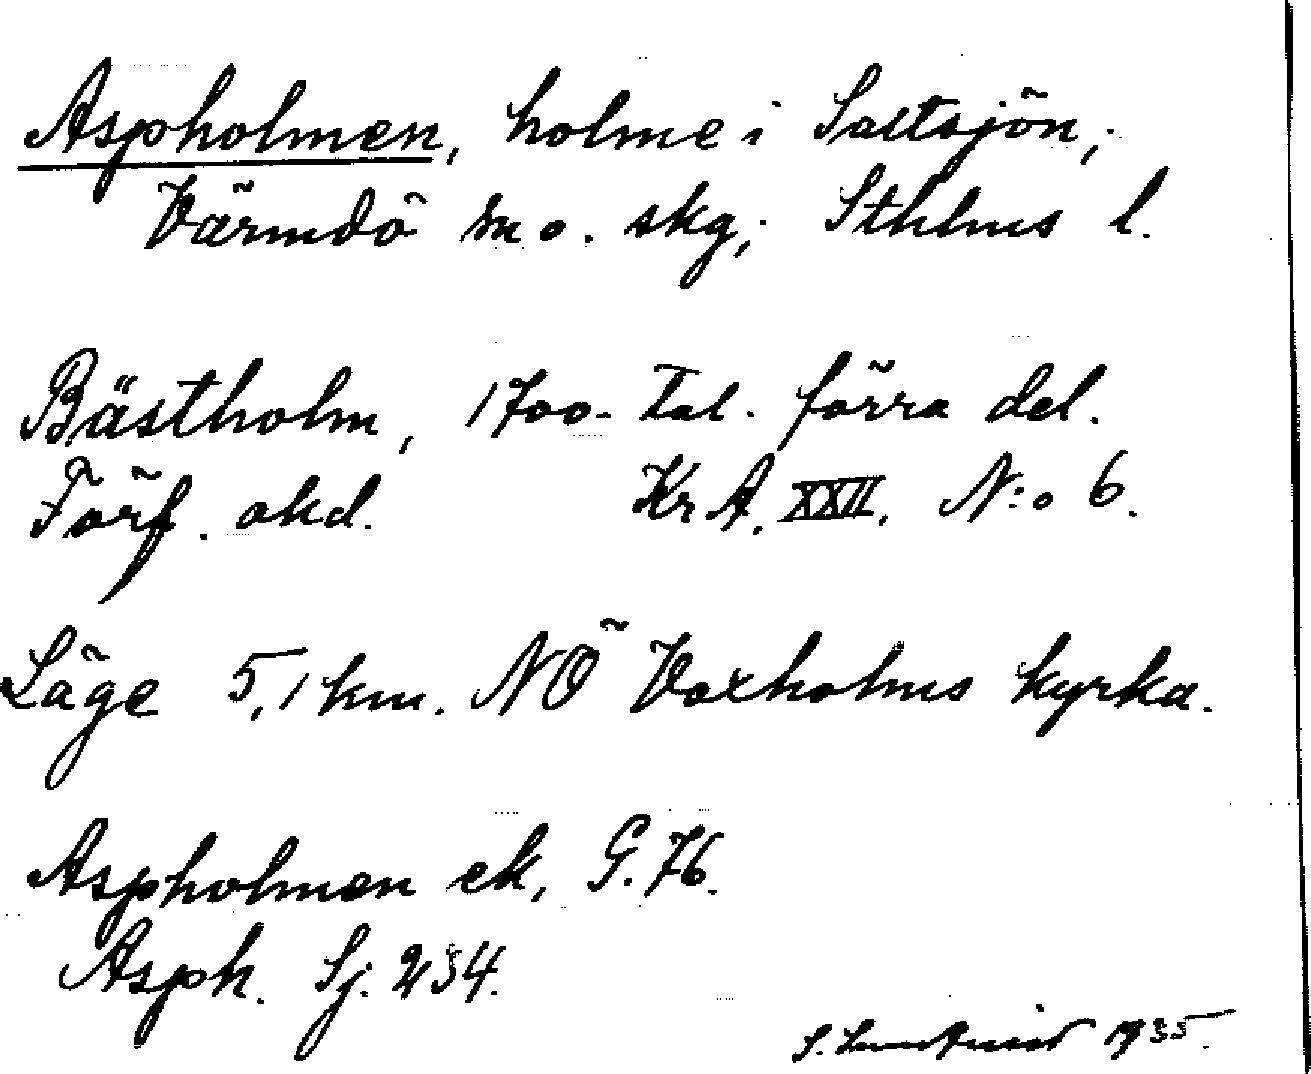 Aspholmen, holme i Saltsjön;
Värmdö sn o. skg; Sthlms l.
Bästholm, 1700-tal. förra del.
Förf. okd. KrA. XXII. N:o 6.
Läge 5,1 km. NÖ Vaxholms kyrka.
Aspholmen ek, G. 76.
Asph. Sj. 234.
S. 1935.